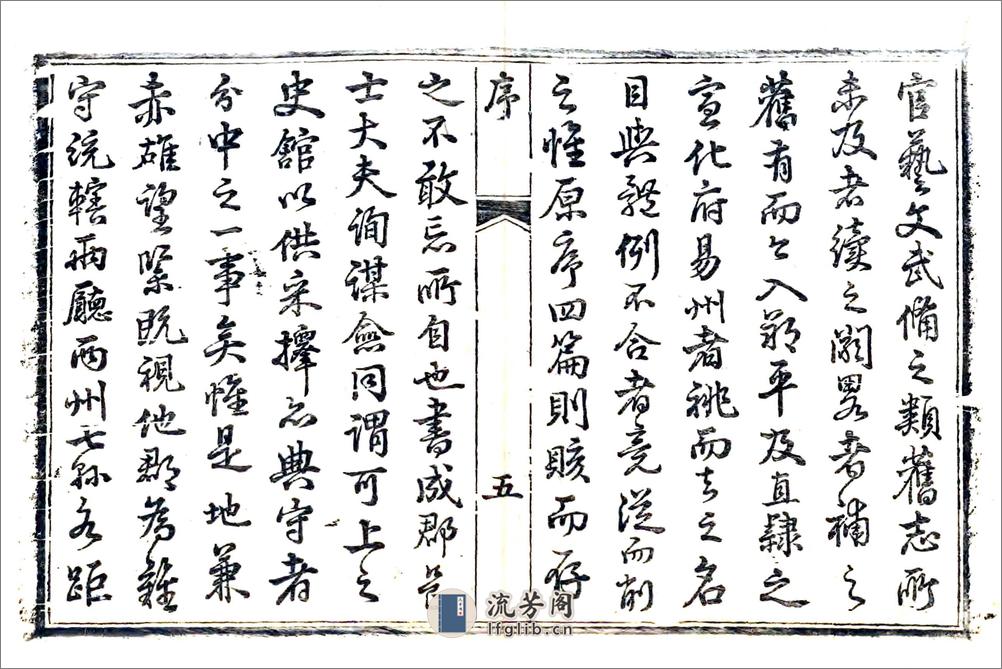 官藝文武備之類舊志所
未及者續之闕畧者補之
舊有而今入郭平及直隸之
宣化府易州者祧而去之名
目與體例不合者竟從而削
之惟原序四篇則賅而存
序
五
之不敢忘所自也書成郡
士大夫詢謀僉同謂可上之
史館以供采擇亦典守者
分中之一事矣惟是地兼
赤雄望緊既視他郡為難
守統轄兩廳兩州七縣各距
流芳阁
lfglib.cn